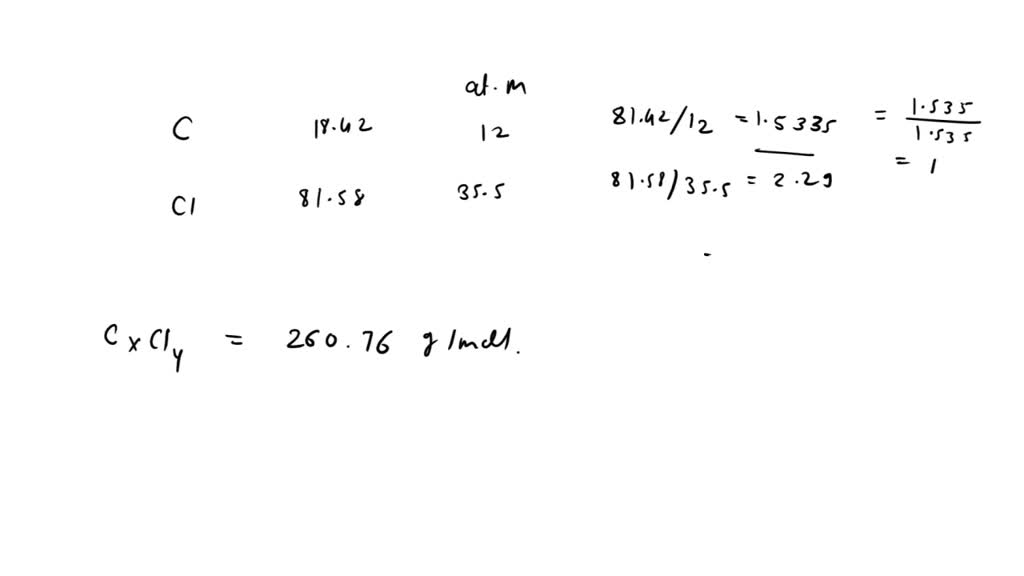 at.m
C 18.42 12 81.42/12 = 1.5335 = 1.535/1.535
= 1
Cl 81.58 35.5 81.58/35.5 = 2.29
CxCly = 260.76 g/mol.